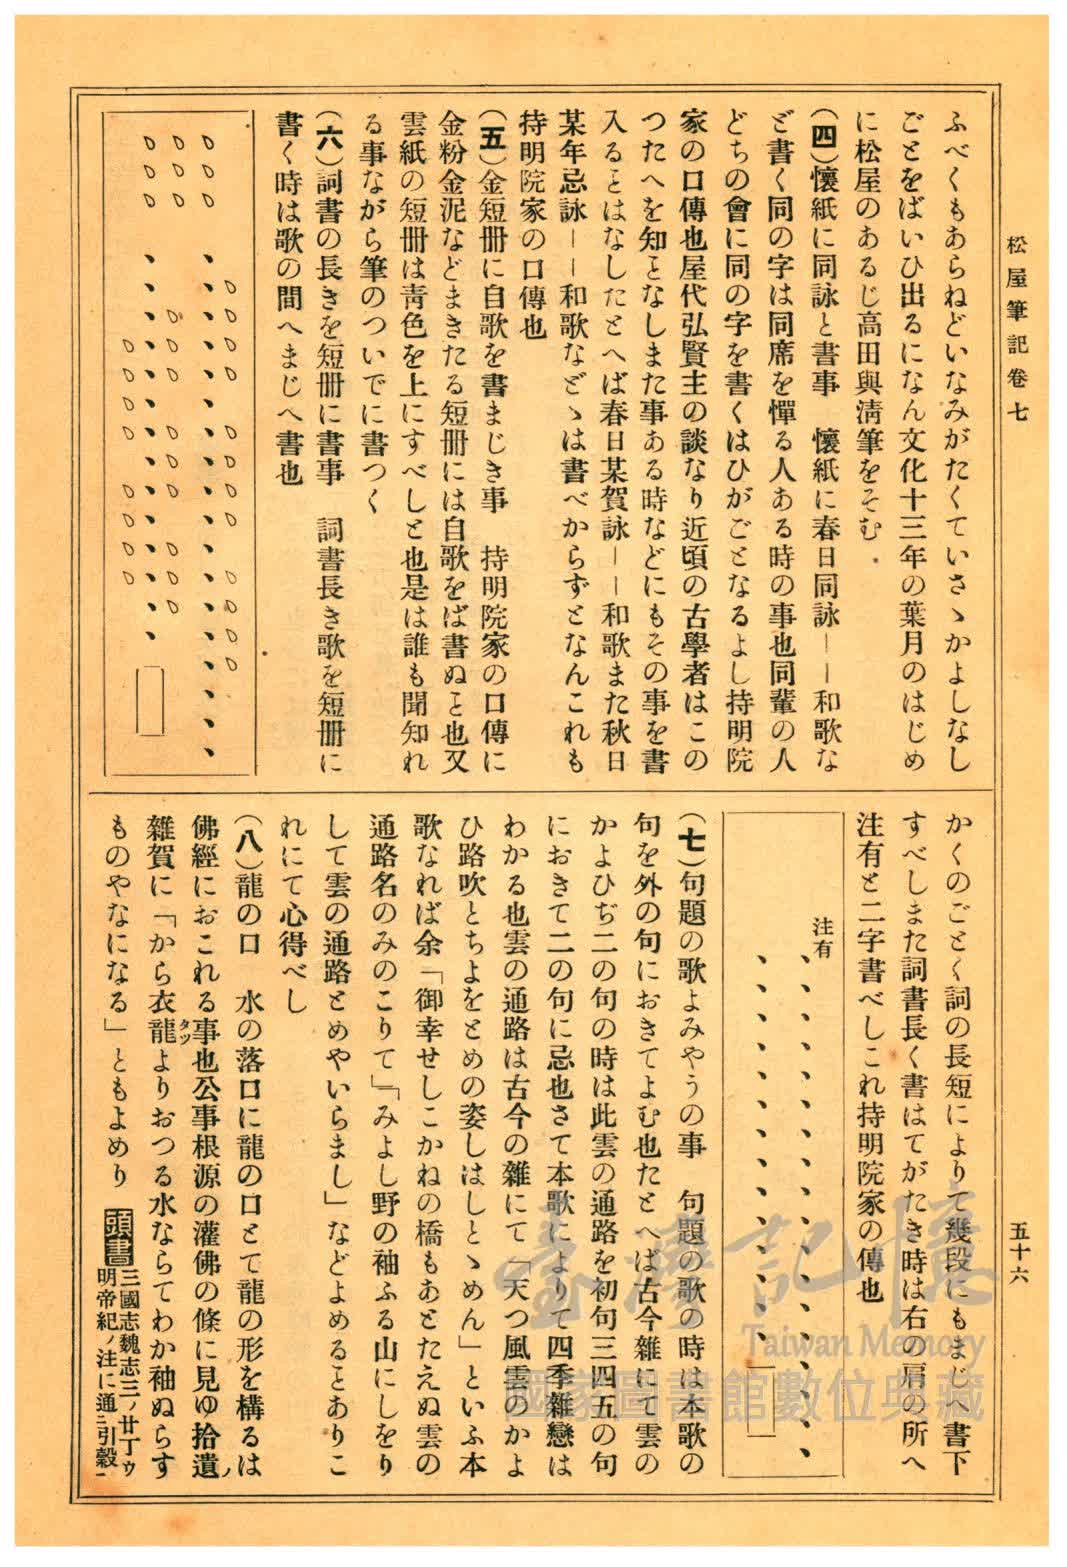 松屋筆記卷七
五十六
ふべくもあらねどいなみがたくていさゝかよしなし
ごとをばいひ出るになん文化十三年の葉月のはじめ
に松屋のあるじ高田與淸筆をそむ.
(四)懷紙に同詠と書事　懷紙に春日同詠——和歌な
ど書く同の字は同席を憚る人ある時の事也同輩の人
どちの會に同の字を書くはひがごとなるよし持明院
家の口傳也屋代弘賢主の談なり近頃の古學者はこの
つたへを知となしまた事ある時などにもその事を書
入るとはなしたとへば春日某賀詠——和歌また秋日
某年忌詠——和歌などゝは書べからずとなんこれも
持明院家の口傳也
(五)金短冊に自歌を書まじき事　持明院家の口傳に
金粉金泥などまきたる短冊には自歌をば書ぬと也又
雲紙の短冊は靑色を上にすべしと也是は誰も聞知れ
る事ながら筆のついでに書つく
(六)詞書の長きを短冊に書事　詞書長き歌を短冊に
書く時は歌の間へまじへ書也
かくのごとく詞の長短によりて幾段にもまじへ書下
すべしまた詞書長く書はてがたき時は右の肩の所へ
注有と二字書べしこれ持明院家の傳也
注有
(七)句題の歌よみやうの事　句題の歌の時は本歌の
句を外の句におきてよむ也たとへば古今雜にて雲の
かよひぢ二の句の時は此雲の通路を初句三四五の句
におきて二の句に忌也さて本歌によりて四季雜戀は
わかる也雲の通路は古今の雜にて「天つ風雲のかよ
ひ路吹とちよをとめの姿しはしとゝめん」といふ本
歌なれば余「御幸せしこかねの橋もあとたえぬ雲の
通路名のみのこりて」「みよし野の袖ふる山にしをり
して雲の通路とめやいらまし」などよめるとありこ
れにて心得べし
(八)龍の口　水の落口に龍の口とて龍の形を構るは
佛經におこれる事也公事根源の灌佛の條に見ゆ拾遺ノ
雜賀に「から衣龍タツよりおつる水ならてわか袖ぬらす
ものやなになる」ともよめり　頭書
三國志魏志三ノ廿丁ゥ
明帝紀ノ注に通ニ引穀一
臺灣記憶
Taiwan Memory
國家圖書館數位典藏